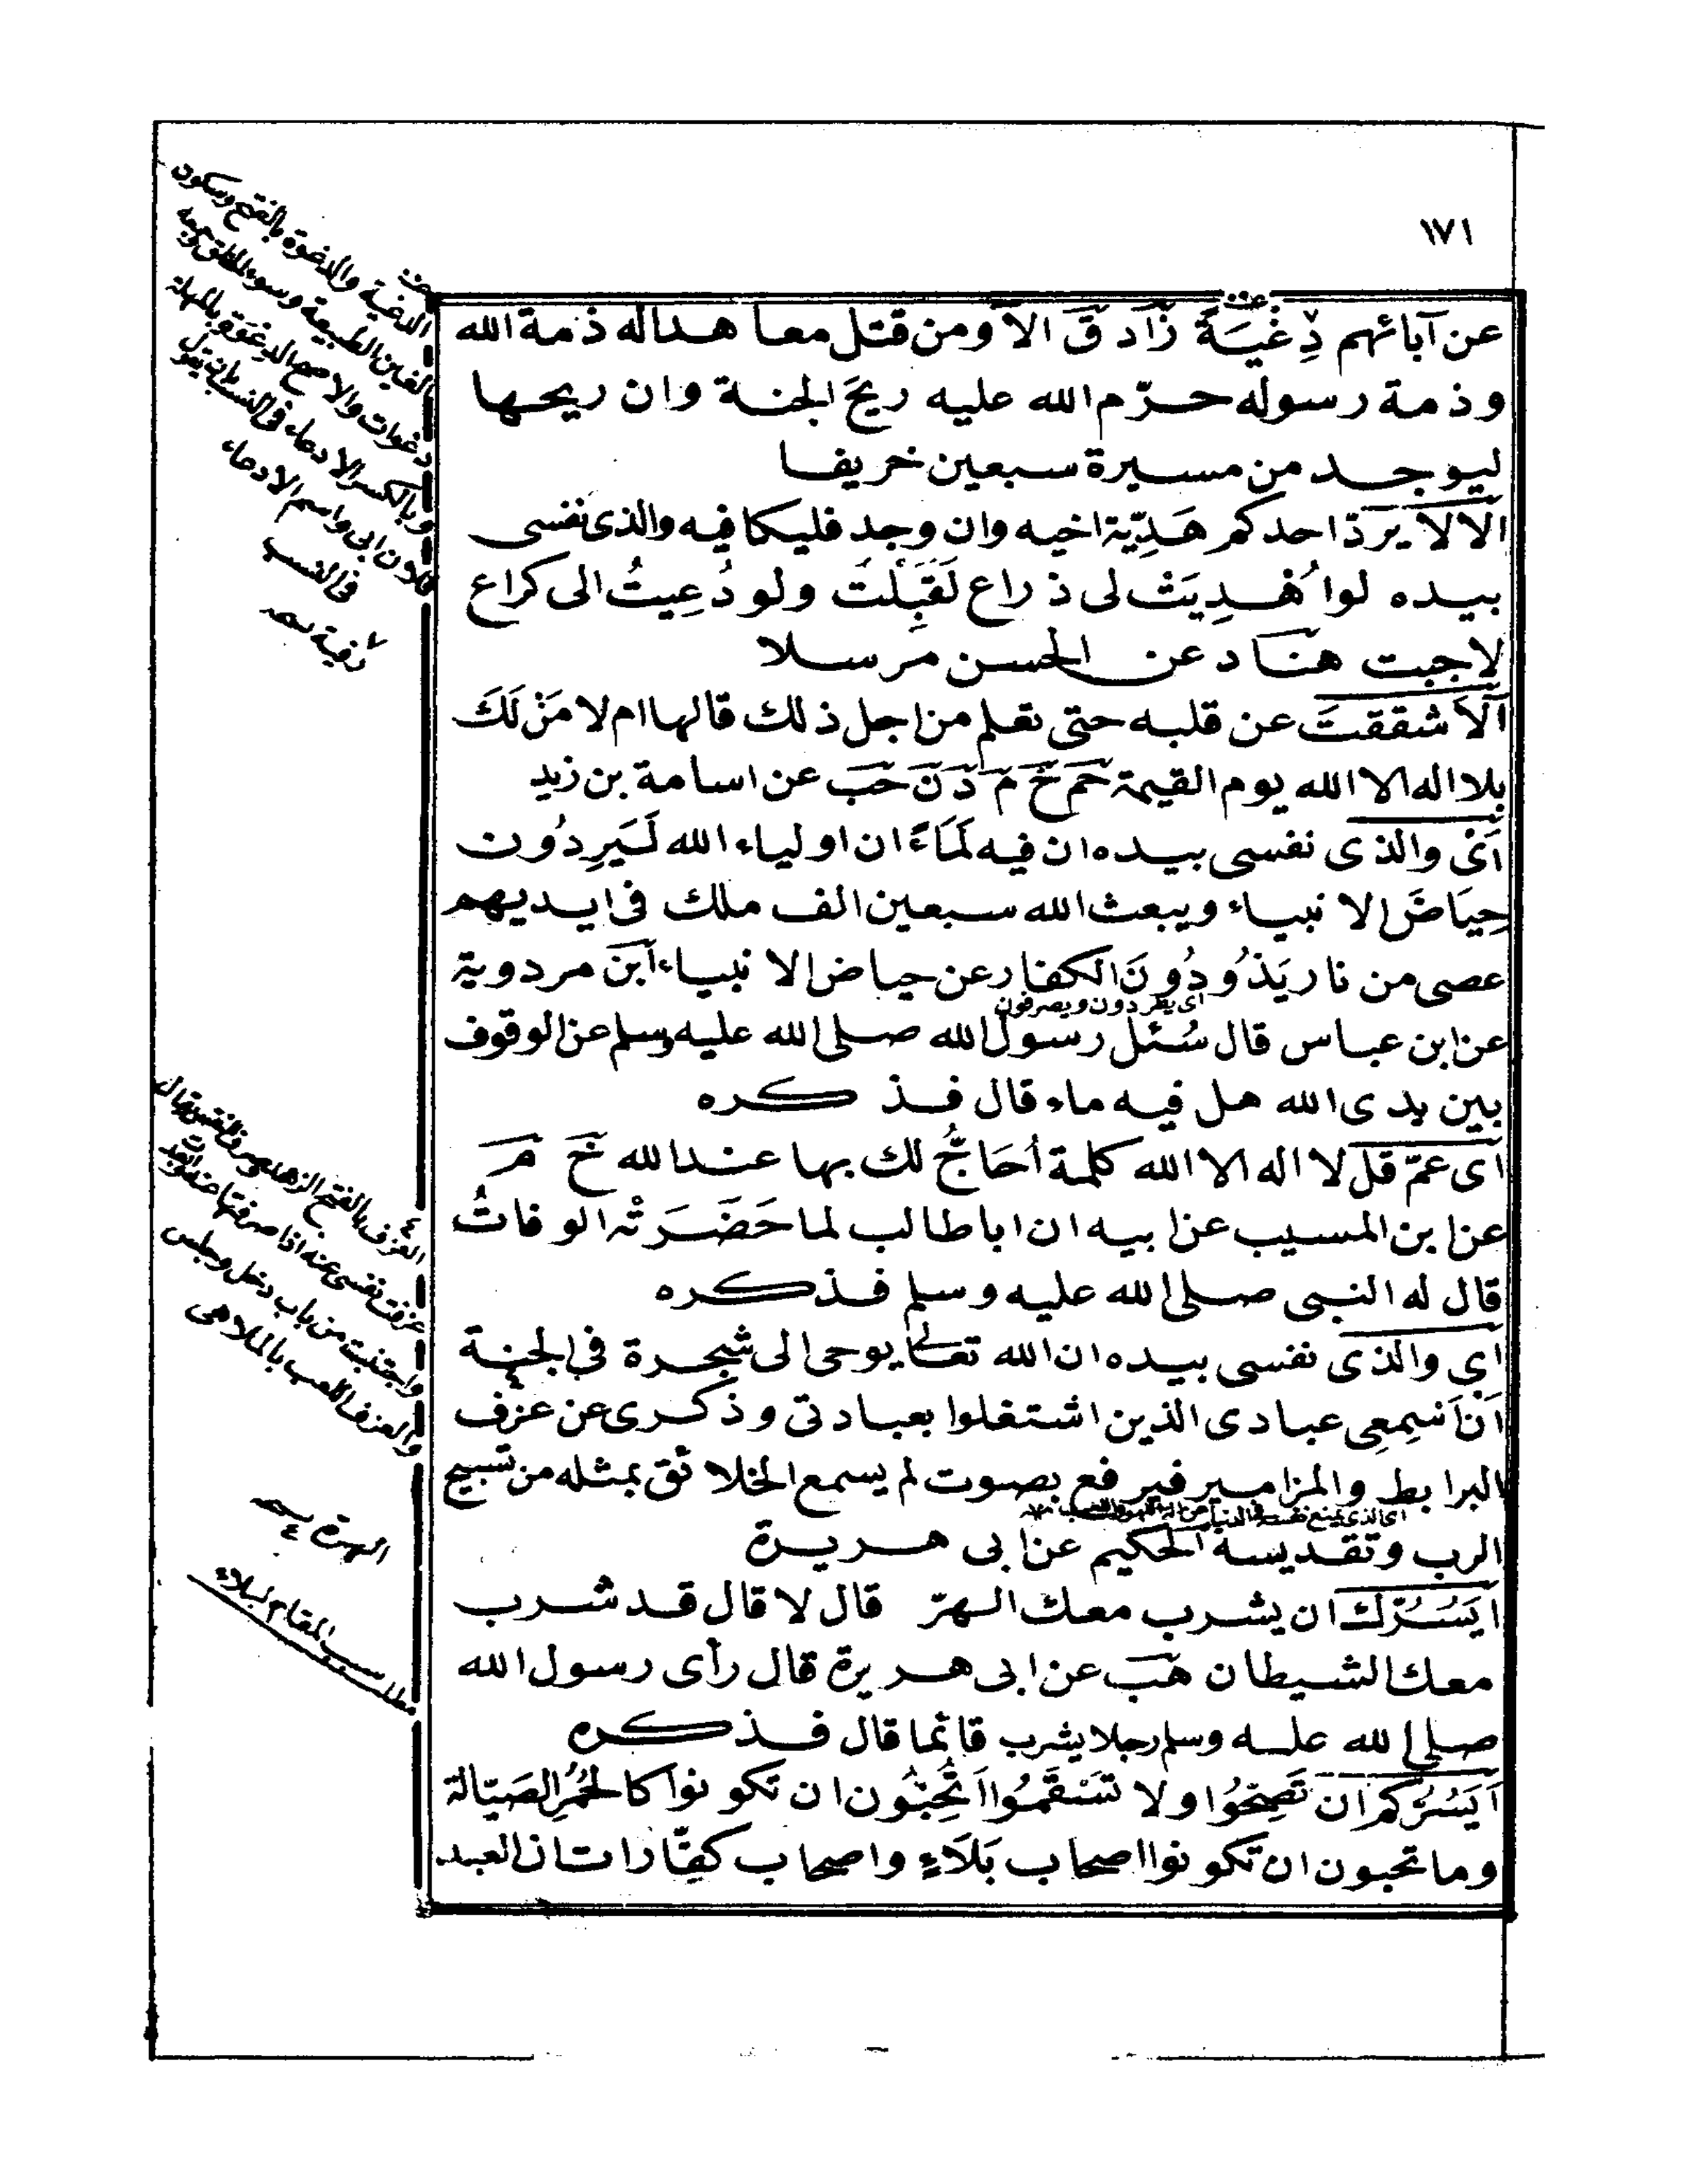 ١٧١
عن آبائهم دِغْيَةً زاد ق الا ومن قتل معاهدا له ذمة الله
وذمة رسوله حرّم الله عليه ريحَ الجنة وان ريحها
ليوجد من مسيرة سبعين خريفا
الا لا يردّ احدكم هَدِيّة اخيه وان وجد فليكافيه والذى نفسى
بيده لو اُهْدِيَتْ لى ذراع لَقَبِلْتُ ولو دُعِيتُ الى كراع
لاجبت هناد عن الحسن مرسلا
اَلَا شققتَ عن قلبه حتى تعلم من اجل ذلك قالها ام لا مَنْ لَكَ
بلا اله الا الله يوم القيمة حم خ م د ن حب عن اسامة بن زيد
اَىْ والذى نفسى بيده ان فيه لَمَاءً ان اولياء الله لَيَرِدُون
حِيَاضَ الانبياء ويبعث الله سبعين الف ملك فى ايديهم
عصى من نار يَذُودُونَ الكفار عن حياض الانبياء ابن مردوية
اى يطردون ويصرفون
عن ابن عباس قال سُئل رسول الله صلى الله عليه وسلم عن الوقوف
بين يدى الله هل فيه ماء قال فذكره
اى عمّ قل لا اله الا الله كلمة اُحَاجُّ لك بها عند الله خ م
عن ابن المسيب عن ابيه ان اباطالب لما حَضَرَتْه الوفاتُ
قال له النبى صلى الله عليه وسلم فذكره
اى والذى نفسى بيده ان الله تعالى يوحى الى شجرة فى الجنة
اَنْ اَسْمِعِى عبادى الذين اشتغلوا بعبادتى وذكرى عن عزف
البرابط والمزامير فيرفع بصوت لم يسمع الخلائق بمثله من تسبيح
الرب وتقديسه الحكيم عن ابى هريرة
ايَسُرّك ان يشرب معك الهرّ قال لا قال قد شرب
معك الشيطان هب عن ابى هريرة قال رأى رسول الله
صلى الله عليه وسلم رجلا يشرب قائما قال فذكره
اَيَسُرُّكم ان تَصِحُّوا ولا تَسْقَمُوا اَتُحِبُّون ان تكونوا كالحُمُرِ الصَيّالة
وما تحبون ان تكونوا اصحاب بَلَاءٍ واصحاب كفّارات ان العبد
الدغية والدغوة بالفتح وسكون
الغين الطبيعة وسوء الخلق وجمعه
دغوات والاصح الدعوة بالمهملة
وبالكسر الادعاء فى النسب بان يقول
فلان ابى واسم الادعاء
فى النسب
العزف بالفتح الزهد وصرف النفس يقال
عزفت نفسى عنه اذا صرفتها عنه
واجتنبت من باب دخل وجلس
والعزف اللعب بالملاهى
الهرة
مطلب المقام لبلاء